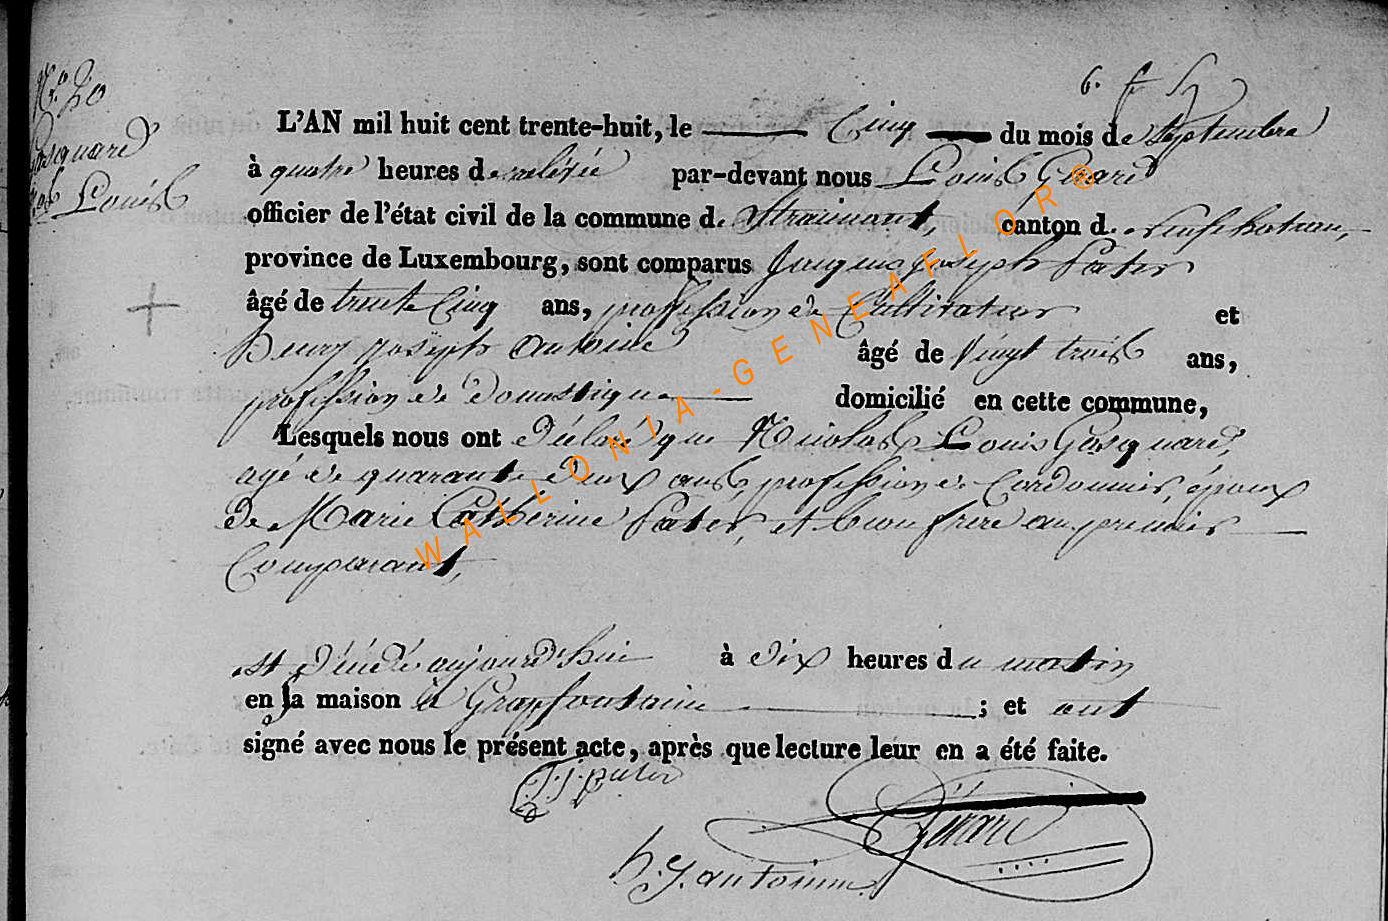 N.° 20
Gasquard
Louis
6. f 5
L'AN mil huit cent trente-huit, le Cinq du mois de Septembre
à quatre heures de relévée par-devant nous Louis Girard
officier de l'état civil de la commune de Straimont, canton de neufchateau,
province de Luxembourg, sont comparus Jacques joseph Pater
âgé de trente Cinq ans, profession de Cultivateur et
henry joseph antoine âgé de vingt trois ans,
profession de domestique domicilié en cette commune,
Lesquels nous ont déclaré que Nicolas Louis Gasquard,
agé de quarante deux ans, profession de Cordonnier, époux
de Marie Catherine Pater, et beau frère au premier
Comparant,
est décédé aujourd'hui à dix heures du matin
en sa maison à Grapfontaine ; et ont
signé avec nous le présent acte, après que lecture leur en a été faite.
J.j. pater
Girard
h. J. antoinne
WALLONIA-GENEAFLOR®